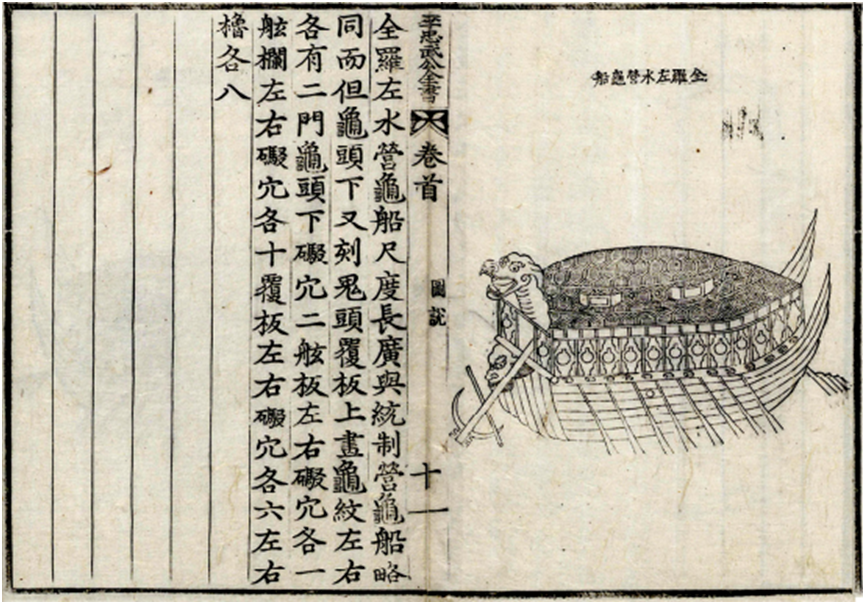 全羅左水營龜船
李忠武公全書 卷首 圖説 十一
全羅左水營龜船尺度長廣與統制營龜船略
同而但龜頭下又刻鬼頭覆板上畫龜紋左右
各有二門龜頭下礮穴二舷板左右礮穴各一
舷欄左右礮穴各十覆板左右礮穴各六左右
櫓各八